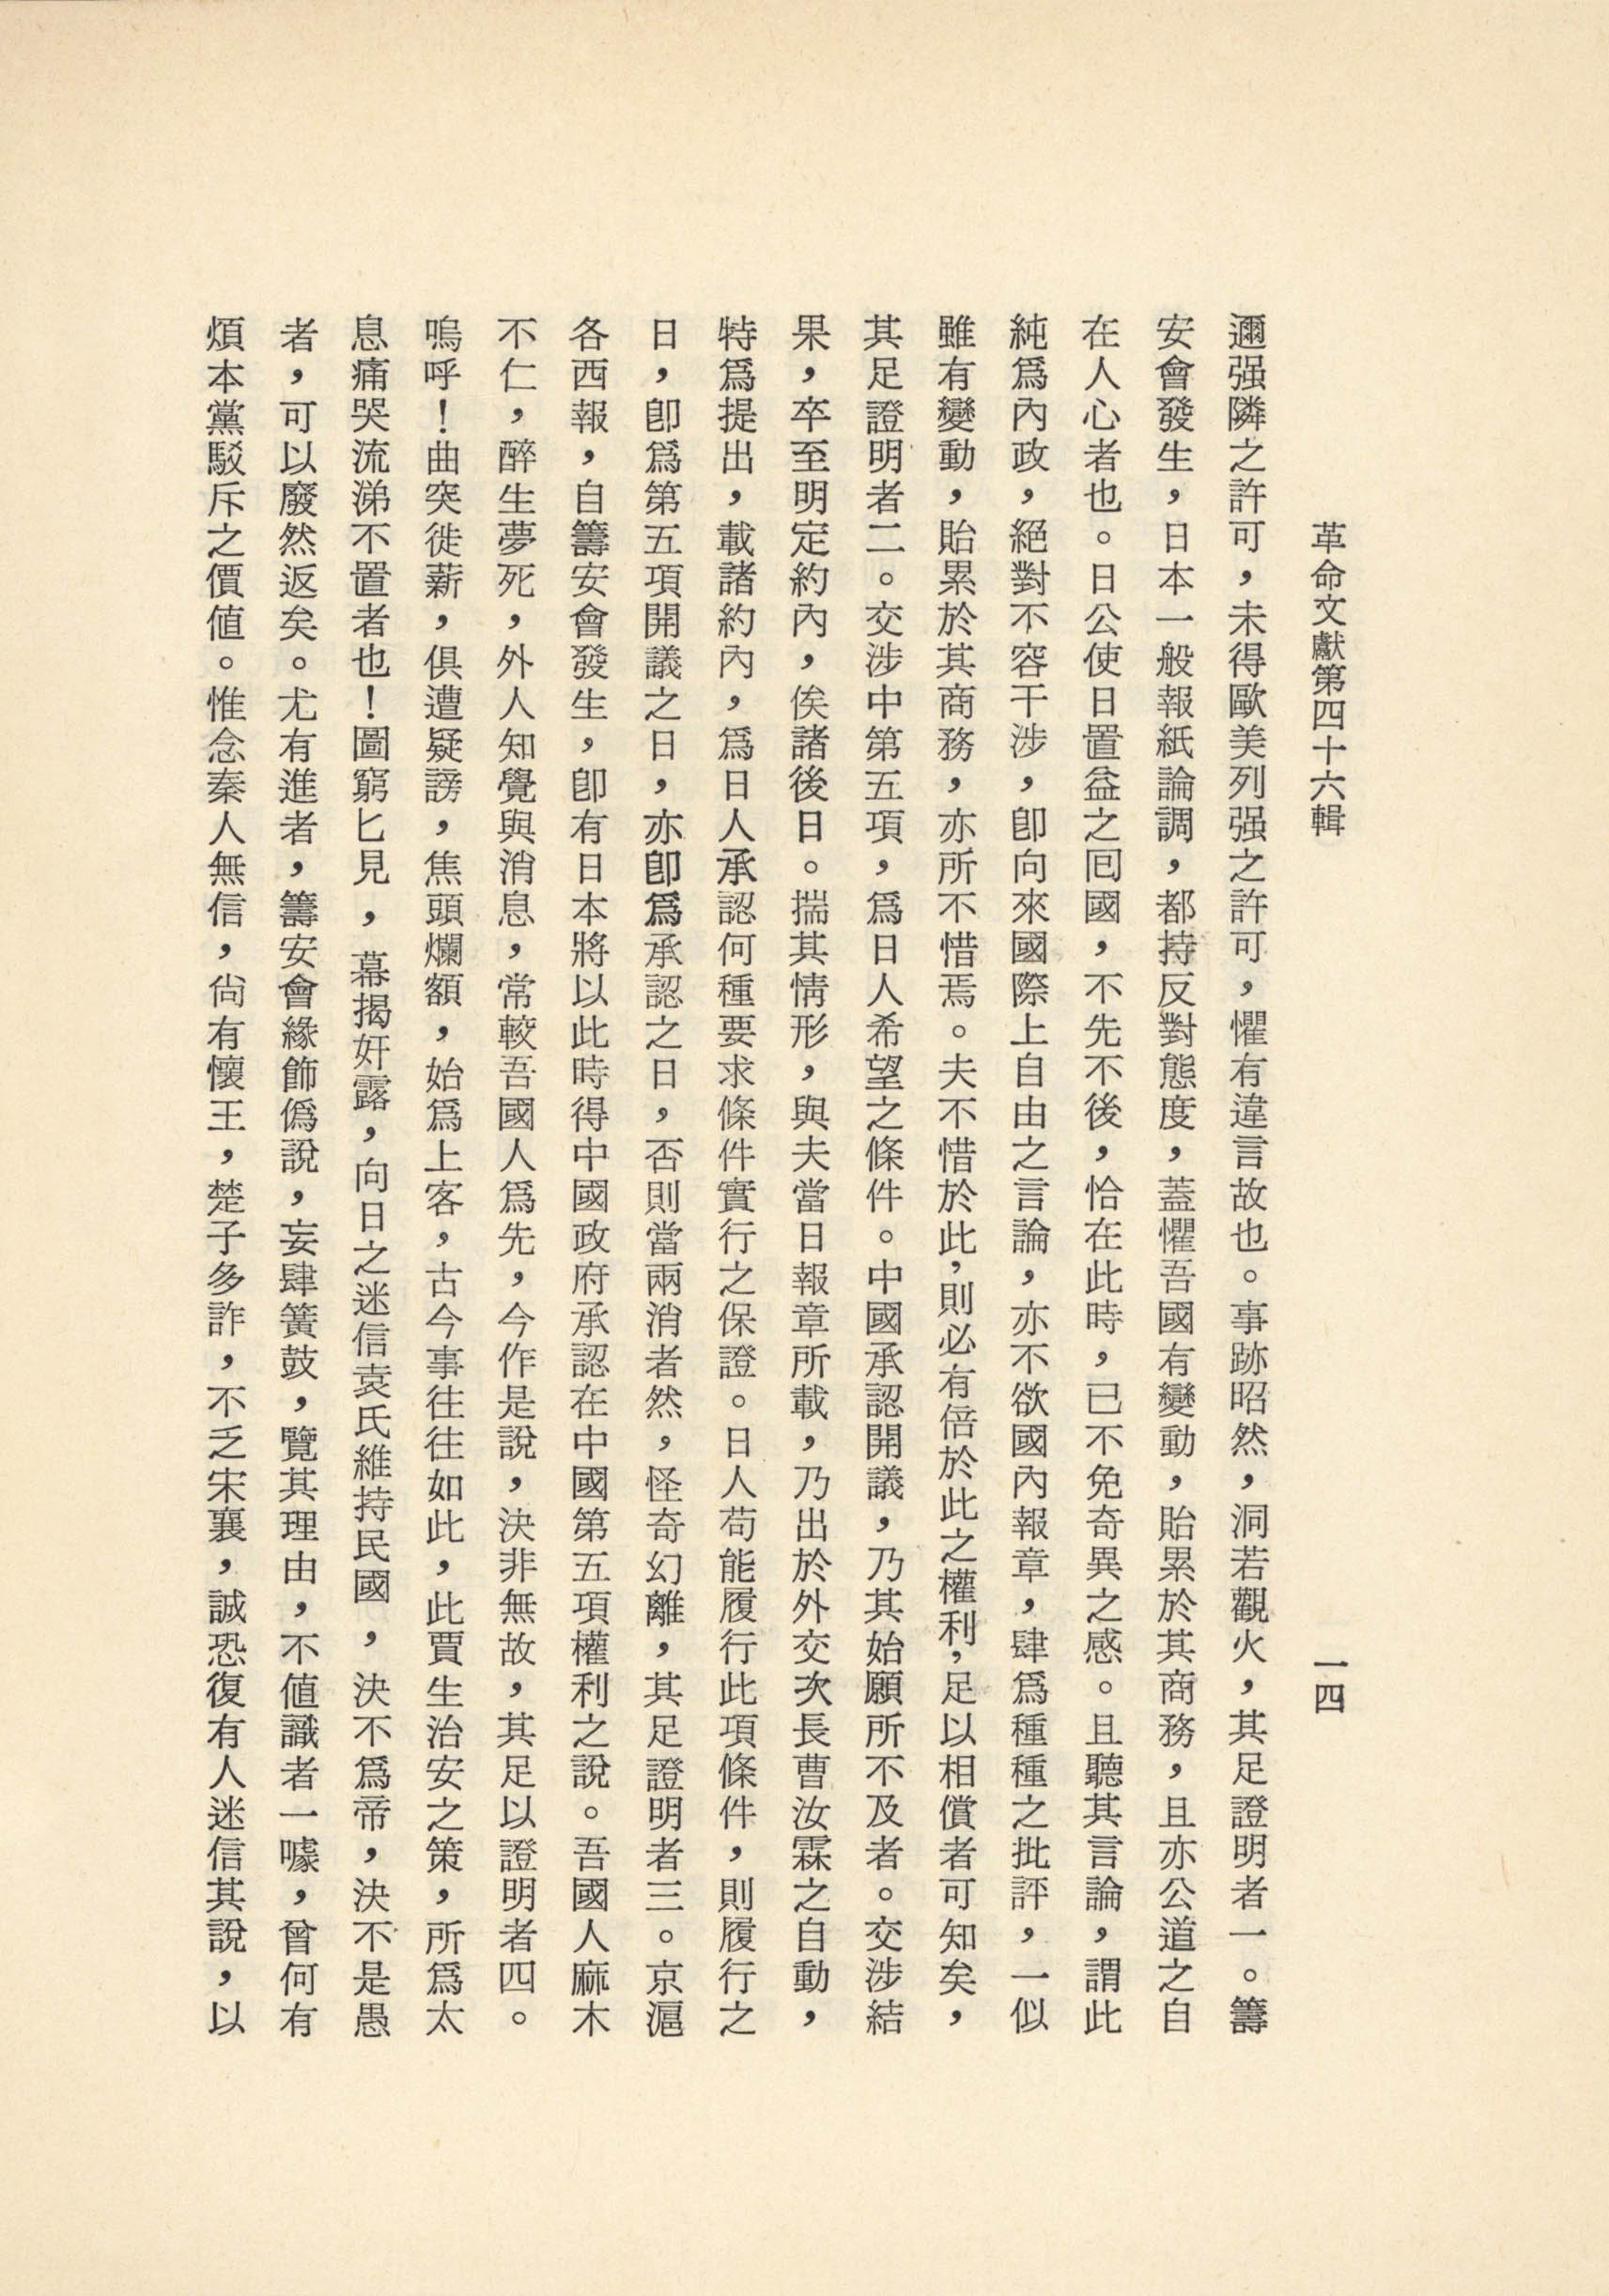 革命文獻第四十六輯
一四
邇强隣之許可，未得歐美列强之許可，懼有違言故也。事跡昭然，洞若觀火，其足證明者一。籌
安會發生，日本一般報紙論調，都持反對態度，蓋懼吾國有變動，貽累於其商務，且亦公道之自
在人心者也。日公使日置益之囘國，不先不後，恰在此時，已不免奇異之感。且聽其言論，謂此
純爲內政，絕對不容干涉，卽向來國際上自由之言論，亦不欲國內報章，肆爲種種之批評，一似
雖有變動，貽累於其商務，亦所不惜焉。夫不惜於此，則必有倍於此之權利，足以相償者可知矣，
其足證明者二。交涉中第五項，爲日人希望之條件。中國承認開議，乃其始願所不及者。交涉結
果，卒至明定約內，俟諸後日。揣其情形，與夫當日報章所載，乃出於外交次長曹汝霖之自動，
特爲提出，載諸約內，爲日人承認何種要求條件實行之保證。日人苟能履行此項條件，則履行之
日，卽爲第五項開議之日，亦卽爲承認之日，否則當兩消者然，怪奇幻離，其足證明者三。京滬
各西報，自籌安會發生，卽有日本將以此時得中國政府承認在中國第五項權利之說。吾國人麻木
不仁，醉生夢死，外人知覺與消息，常較吾國人爲先，今作是說，決非無故，其足以證明者四。
嗚呼！曲突徙薪，俱遭疑謗，焦頭爛額，始爲上客，古今事往往如此，此賈生治安之策，所爲太
息痛哭流涕不置者也！圖窮匕見，幕揭奸露，向日之迷信袁氏維持民國，決不爲帝，決不是愚
者，可以廢然返矣。尤有進者，籌安會緣飾僞說，妄肆簧鼓，覽其理由，不值識者一噱，曾何有
煩本黨駁斥之價値。惟念秦人無信，尙有懷王，楚子多詐，不乏宋襄，誠恐復有人迷信其說，以